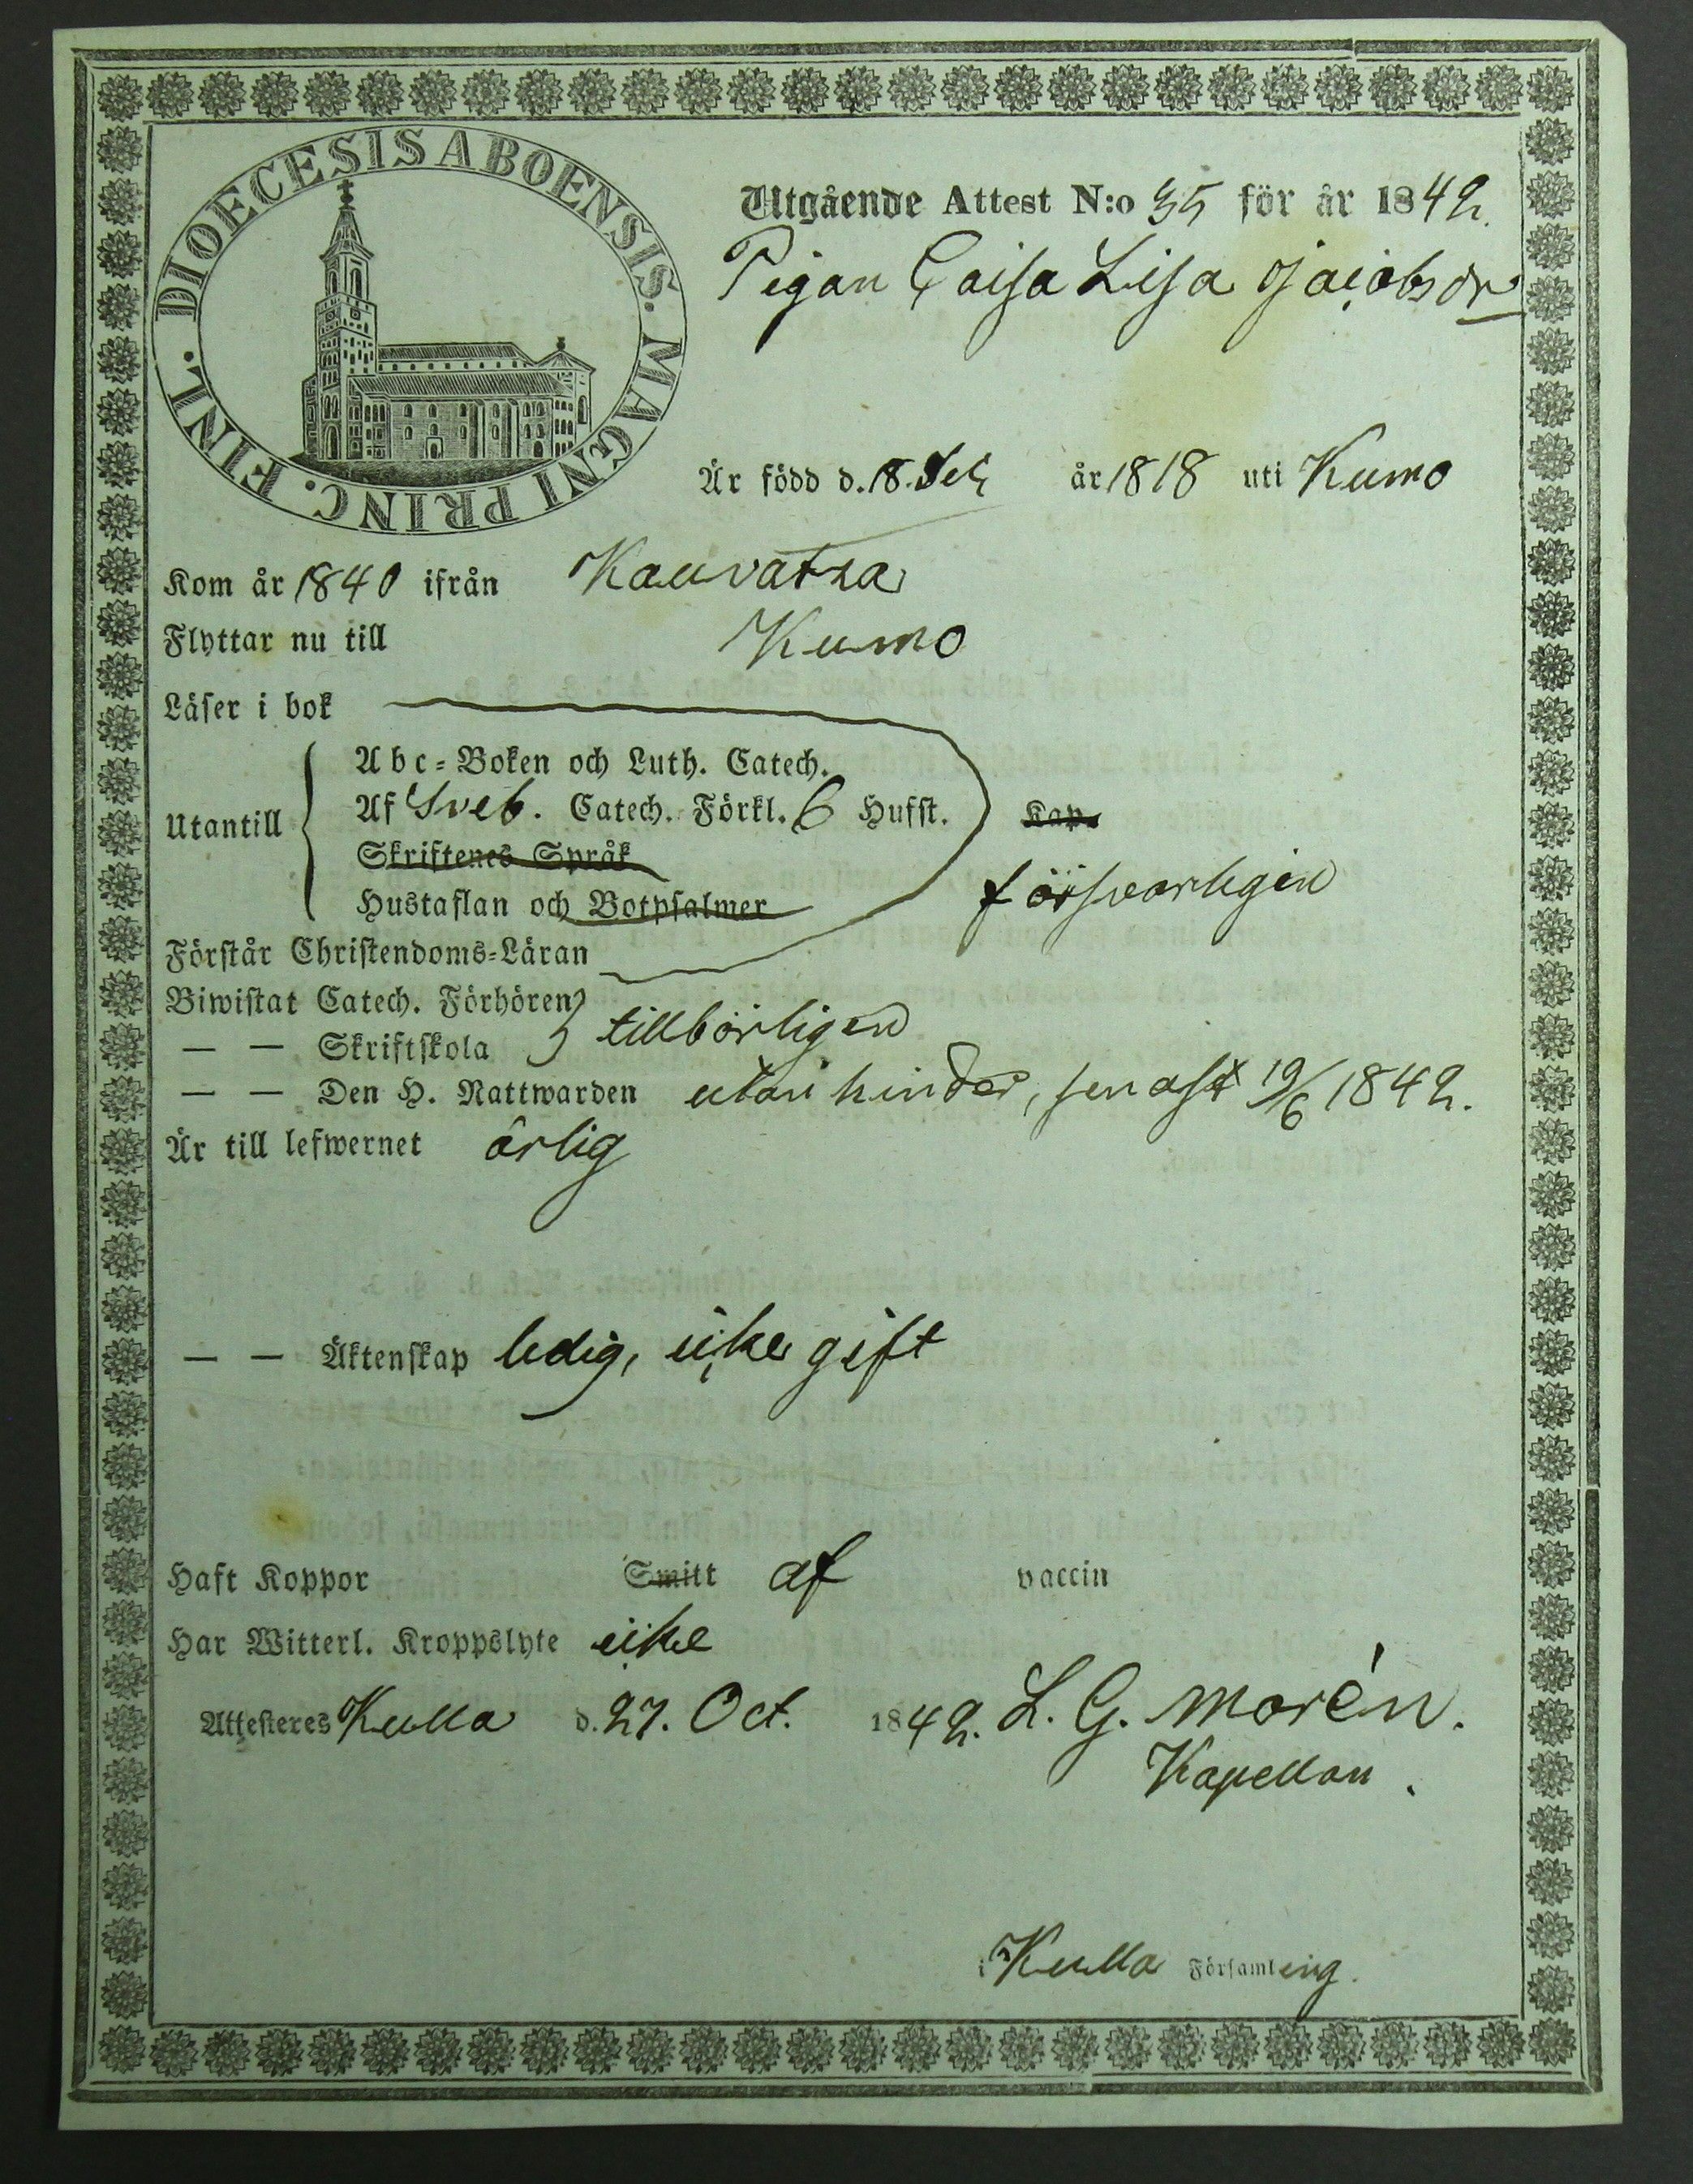 DIOECESIS ABOENSIS. MAGNI PRINC. FINL.
Utgående Attest N:o 35 för år 1842.
Pigan Caisa Lisa Jacobsdr
Är född d. 18. år 1818 uti Kumo
Kom år 1840 ifrån Kauvatsa
Flyttar nu till Kumo
Läser i bok
Abc-Boken och Luth. Catech.
Utantill Af Sveb. Catech. Förkl. 6 Hufst. Kap.
Skriftenes Språk
Hustaflan och Botpsalmer försvarligen
Förstår Christendoms-Läran
Biwistat Catech. Förhören
— — Skriftskola tillbörligen
— — Den H. Nattwarden utan hinder, senast 19/6 1842.
Är till lefwernet ärlig
— — Äktenskap ledig, icke gift
Haft Koppor Smitt af vaccin
Har Witterl. Kroppslyte icke
Attesteres Kulla d. 27. Oct. 1842. L. G. Morén.
Kapellan.
i Kulla Församling.